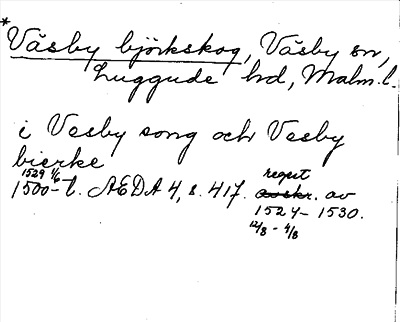 *
Väsby björkskog, Väsby sn,
Luggude hd, Malm. l.
i Vesby song och Vesby
bierke
1529 1/6 regest
1500-t. AEDA 4, s. 417. avskr. av
1524 - 1530.
12/8 - 4/8